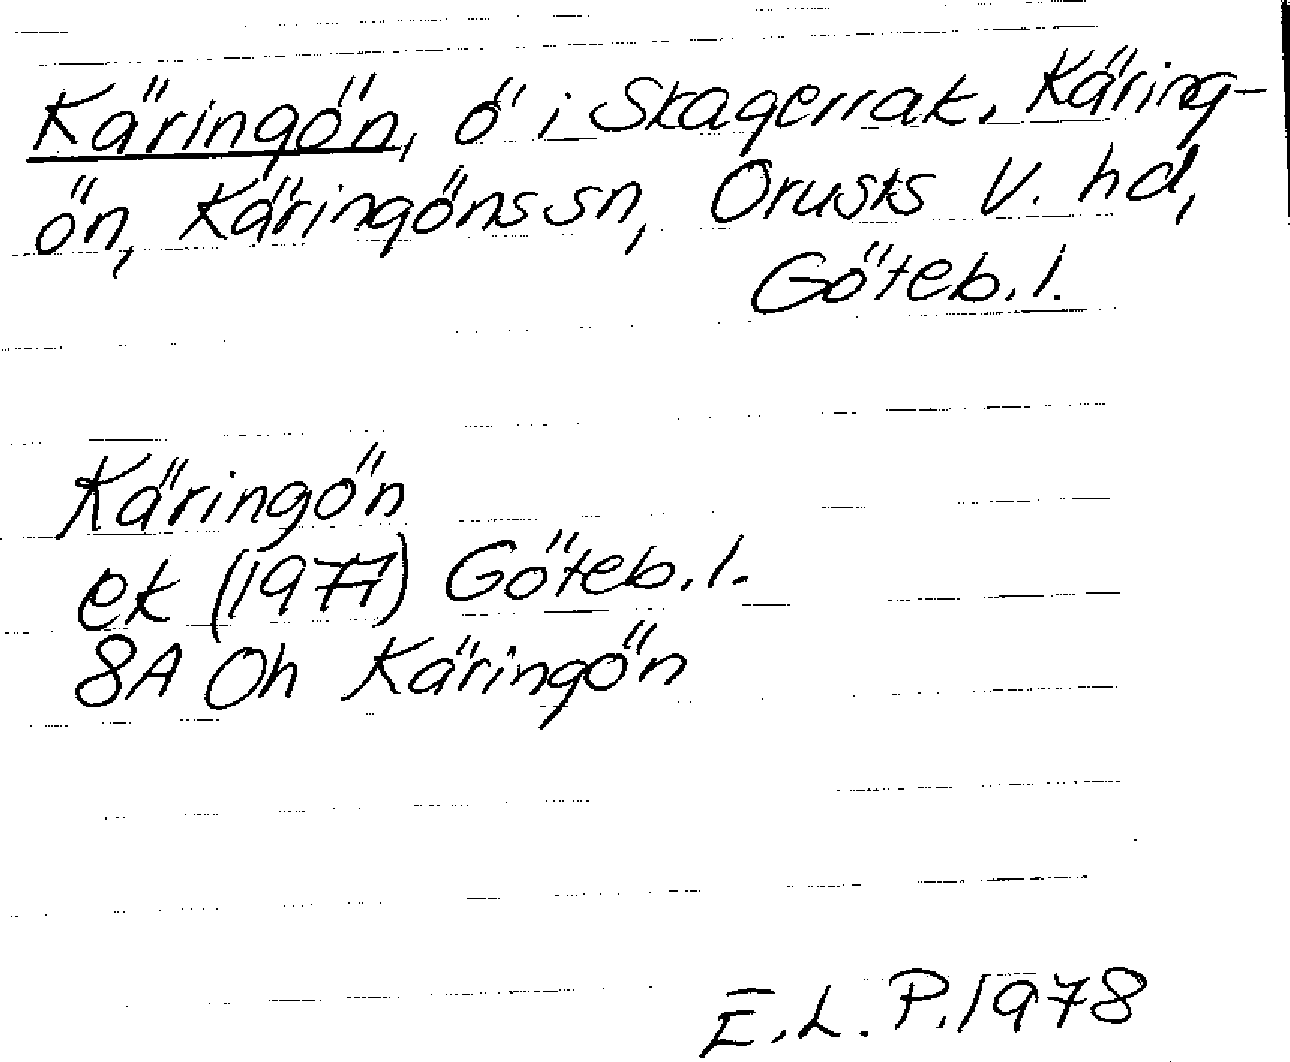 Käringön, ö i Skagerrak, Käring-
ön, Käringöns sn, Orusts V. hd,
Göteb. l.
Käringön
ek (1977) Göteb. l.
8A Oh Käringön
E. L. P. 1978